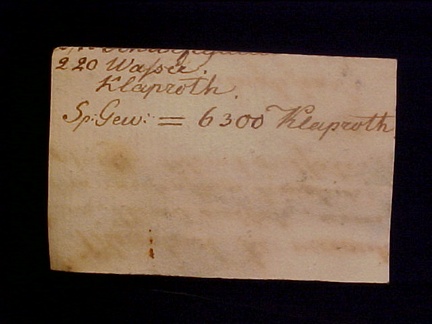 220 Waſser.
Klaproth.
Sp: Gew: = 6300 Klaproth